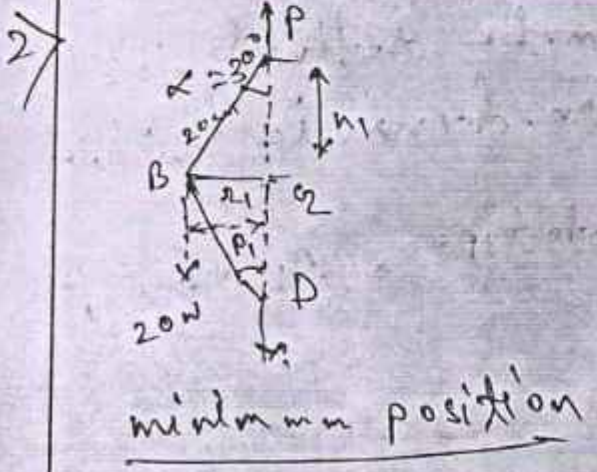 2)
P
α = 30°
20cm
h1
B
r1
G
β1
D
20N
minimum position